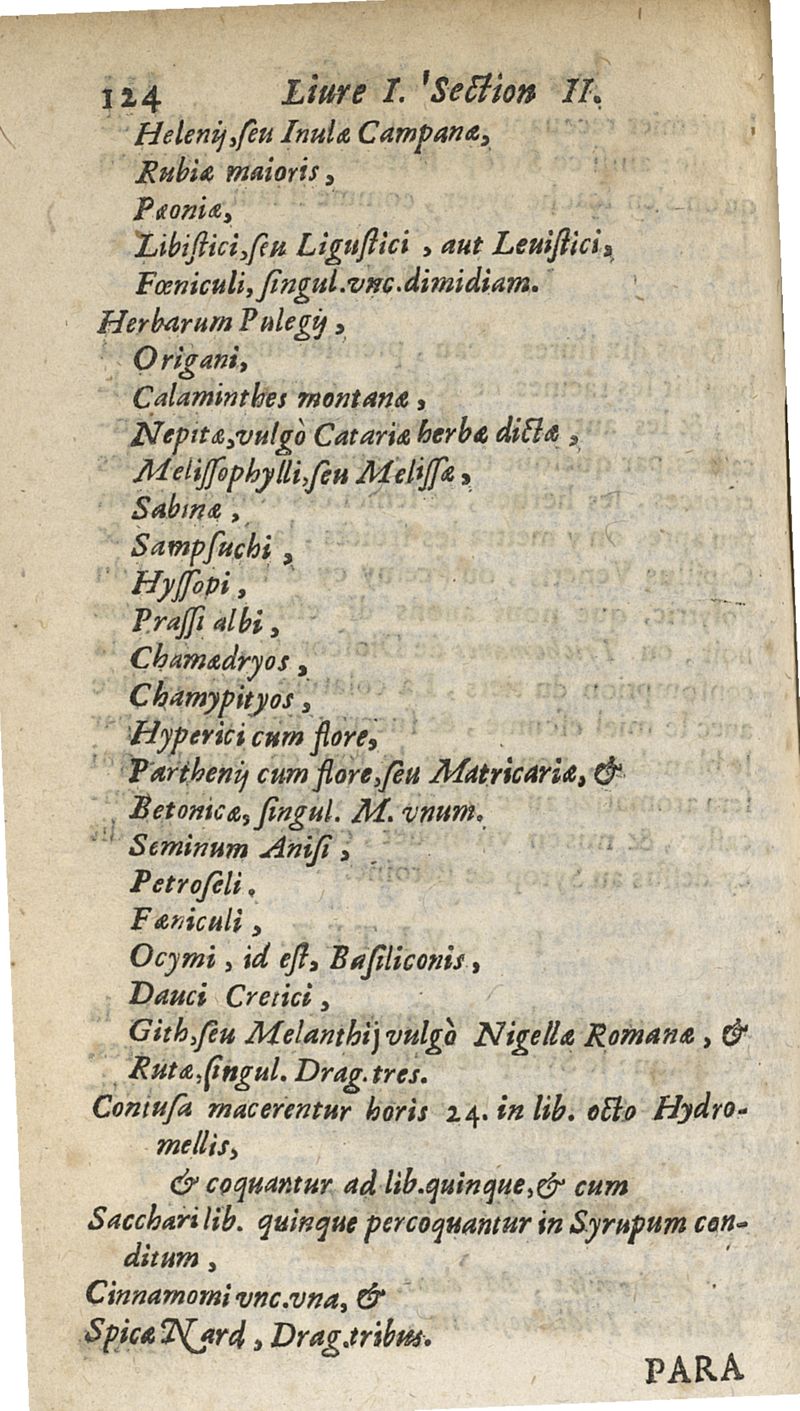 124 Liure I. Section II.
Helenij, ſeu Inulæ Campanæ,
Rubiæ maioris,
Pæoniæ,
Libiſtici, ſeu Liguſtici, aut Leuiſtici,
Fœniculi, ſingul. vnc. dimidiam.
Herbarum Pulegij,
Origani,
Calaminthes montanæ,
Nepitæ, vulgò Catariæ herbæ dictæ,
Meliſſophylli, ſeu Meliſſæ,
Sabinæ,
Sampſuchi,
Hyſſopi,
Praſſi albi,
Chamædryos,
Chamypityos,
Hyperici cum flore,
Parthenij cum flore, ſeu Matricariæ, &
Betonicæ, ſingul. M. vnum.
Seminum Aniſi,
Petroſeli.
Fæniculi,
Ocymi, id eſt, Baſiliconis,
Dauci Cretici,
Gith, ſeu Melanthij vulgò Nigellæ Romanæ, &
Rutæ, ſingul. Drag. tres.
Contuſa macerentur horis 24. in lib. octo Hydro-
mellis,
& coquantur ad lib. quinque, & cum
Sacchari lib. quinque percoquantur in Syrupum con-
ditum,
Cinnamomi vnc. vna, &
Spicæ Nard, Drag. tribus.
PARA